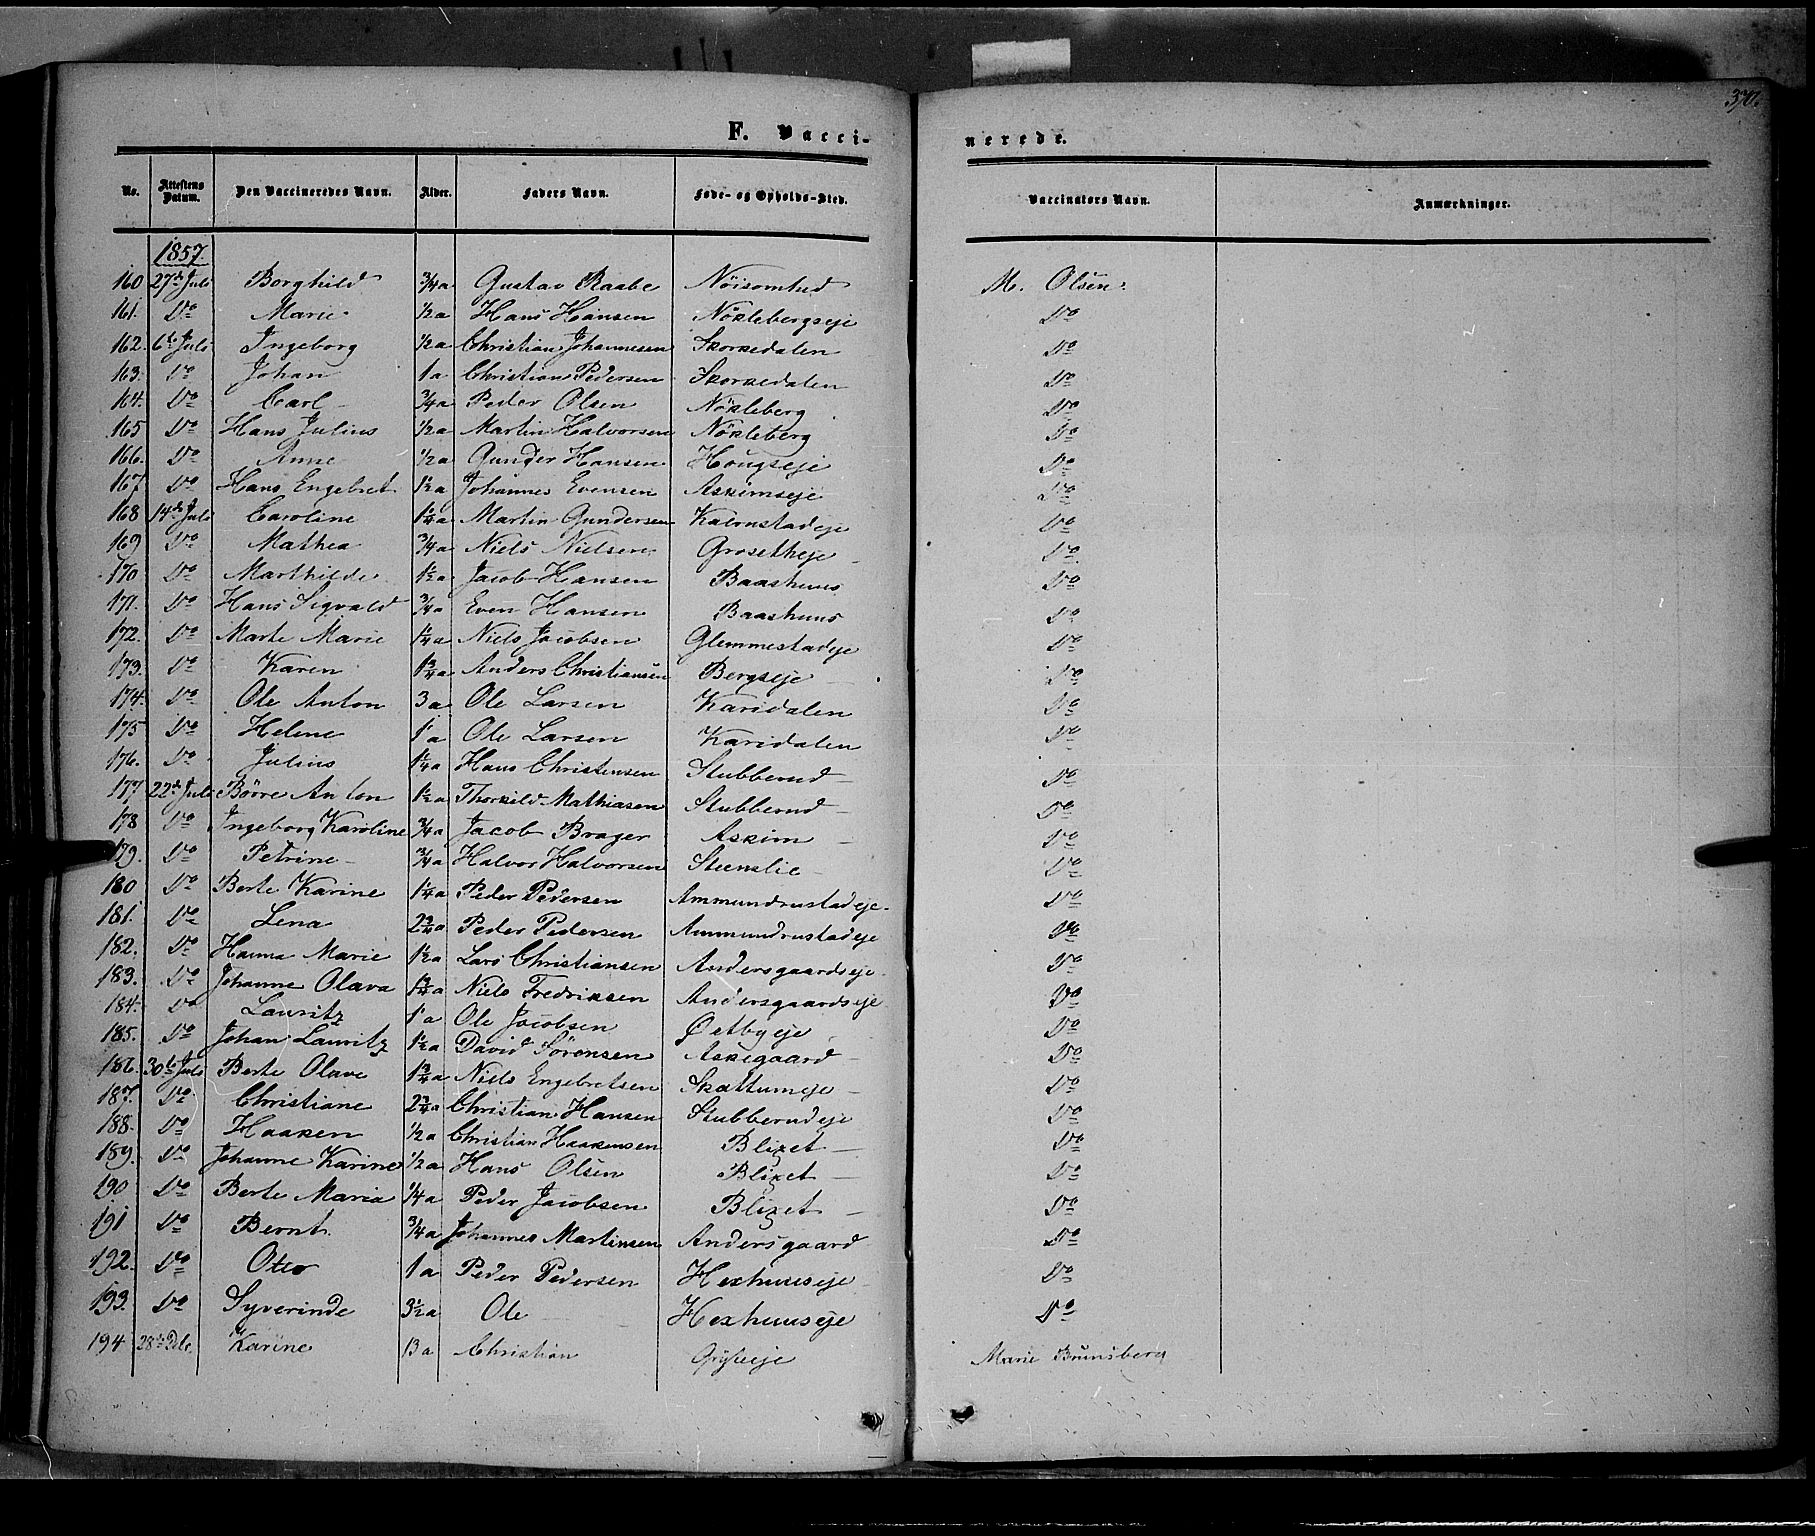 370.
F. Vacci- nerede.
No. Attestens Datum. Den Vaccineredes Navn. Alder. Faders Navn. Føde- og Opholds-Sted. Vaccinators Navn. Anmærkninger.
1857.
160 27de Juli Borghild 3/4 a Gustav Raabe Nöisomhed M. Olsen.
161. Do Marie 1/2 a Hans Hansen Nöklebergseje Do
162. 6te Juli Ingeborg 1/2 a Christian Johannesen Skorkedalen Do
163. Do Johan 1 a Christian Pedersen Skorkedalen Do
164. Do Carl 3/4 a Peder Olsen Nökleberg Do
165 Do Hans Julius 1/2 a Martin Halvorsen Nökleberg Do
166. Do Anne 1/2 a Gunder Hansen Hougseje Do
167. Do Hans Engebret 1 1/2 a Johannes Evensen Askimseje Do
168 14de Juli Caroline 1 1/4 a Martin Gundersen Kalrnstadeje Do
169 Do Mathea 3/4 a Niels Nielsen Grosetheje Do
170 Do Marthilde 1 1/2 a Jacob Hansen Baashuus Do
171. Do Hans Sigvald 3/4 a Even Hansen Baashuus Do
172. Do Marte Marie 1 1/4 a Niels Jacobsen Glemmestadeje Do
173. Do Karen 1 3/4 a Anders Christiansen Bergseje Do
174. Do Ole Anton 3 a Ole Larsen Karidalen Do
175 Do Helene 1 a Ole Larsen Karidalen Do
176. Do Julius 1 1/4 a Hans Christensen Stubberud Do
177. 22de Juli Börre Anton 1 1/2 a Thorkild Mathiasen Stubberud Do
178 Do Ingeborg Karoline 3/4 a Jacob Brager Askim Do
179. Do Petrine 3/4 a Halvor Halvorsen Steenslie Do
180 Do Berte Karine 1 1/4 a Peder Pedersen Ammundrustadeje Do
181. Do Lena 2 3/4 a Peder Pedersen Ammundrustadeje Do
182. Do Hanna Marie 1 1/2 a Lars Christiansen Andersgaardseje Do
183. Do Johanne Olava 1 3/4 a Niels Fredriksen Andersgaardseje Do
184. Do Lauritz 1 a Ole Jacobsen Østbyeje Do
185. Do Johan Lauritz 1 1/2 a David Sörensen Askegaard Do
186. 30te Juli Berte Olave 1 3/4 a Niels Engebretsen Skattumeje Do
187. Do Christiane 2 3/4 a Christian Hansen Stubberudeje Do
188. Do Haaken 1/2 a Christian Haakensen Blixet Do
189. Do Johanne Karine 1/2 a Hans Olsen Blixet Do
190 Do Berte Maria 1/4 a Peder Jacobsen Blixet Do
191 Do Bernt 3/4 a Johannes Martinsen Andersgaard Do
192. Do Otto 1 a Peder Pedersen Hexhuuseje Do
193. Do Syverinde 3 1/2 a Ole Hexhuuseje Do
194 28de Karine 13 a Christian Marie Brunsberg